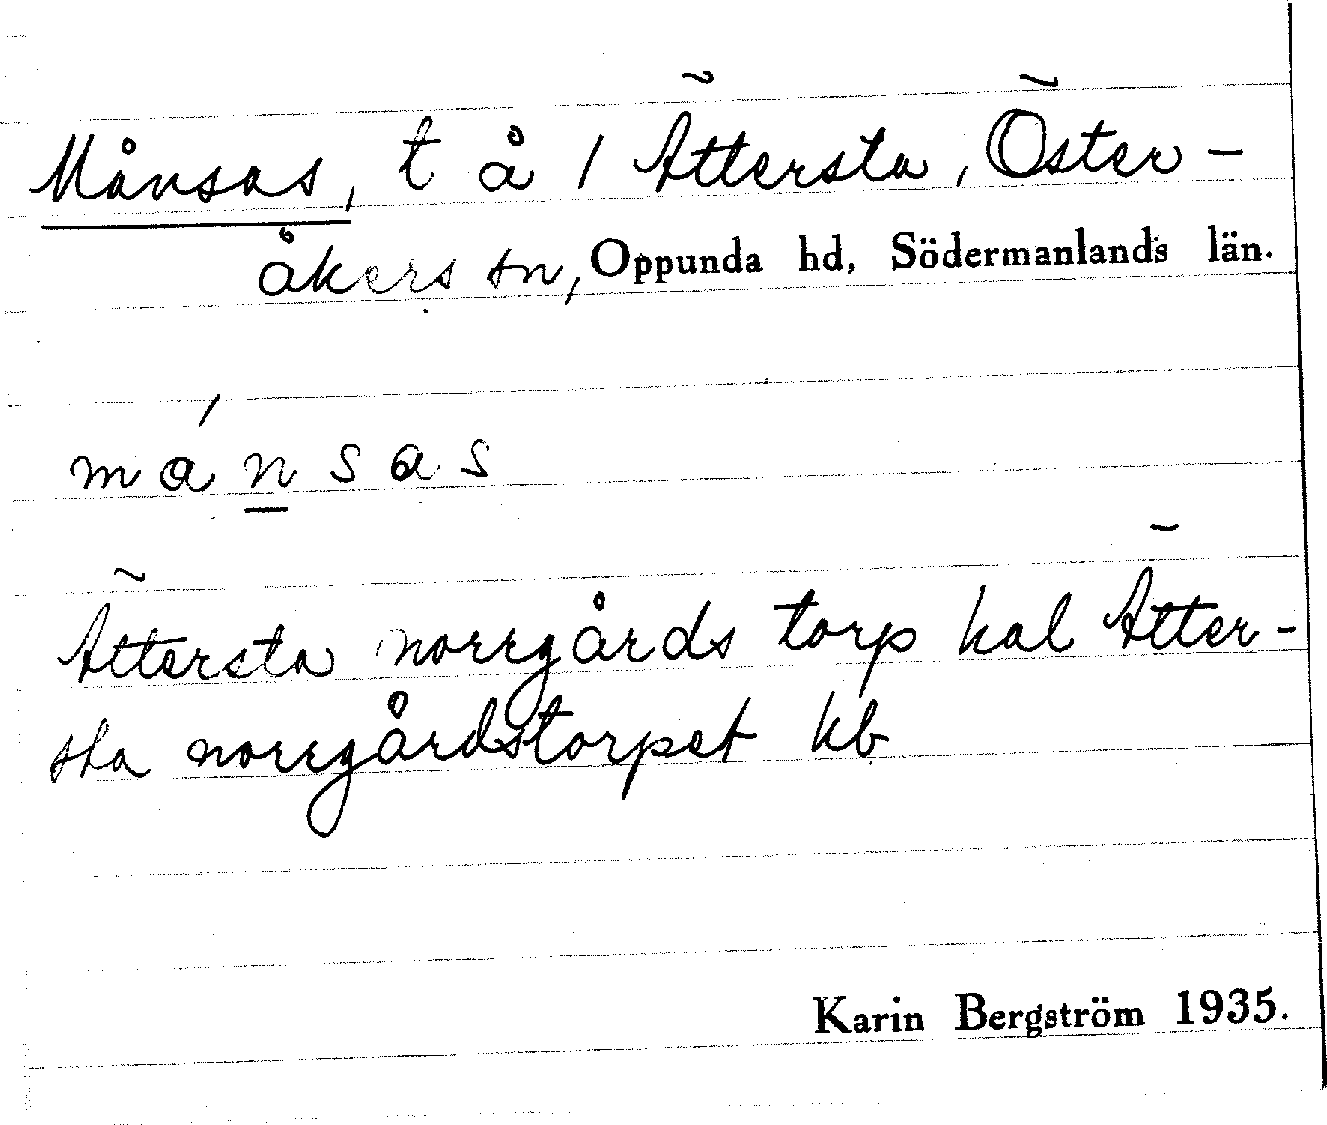 Månsas, t å 1 Ättersta, Öster-
åkers sn, Oppunda hd, Södermanlands län.
mánsas
Ättersta norrgårds torp hal Ätter-
sta norrgårdstorpet kb
Karin Bergström 1935.